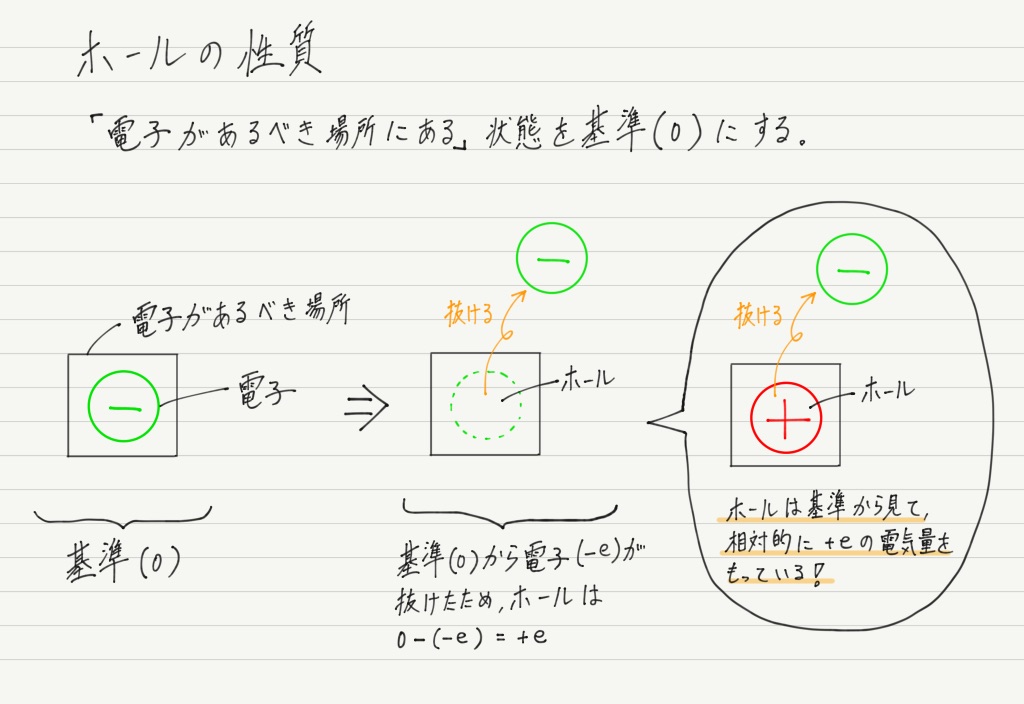 ホールの性質
「電子があるべき場所にある」状態を基準(0)にする。
電子があるべき場所
−
電子
⇒
−
抜ける
ホール
−
抜ける
+
ホール
基準(0)
基準(0)から電子(−e)が
抜けたため,ホールは
0−(−e) = +e
ホールは基準から見て,
相対的に+eの電気量を
もっている!